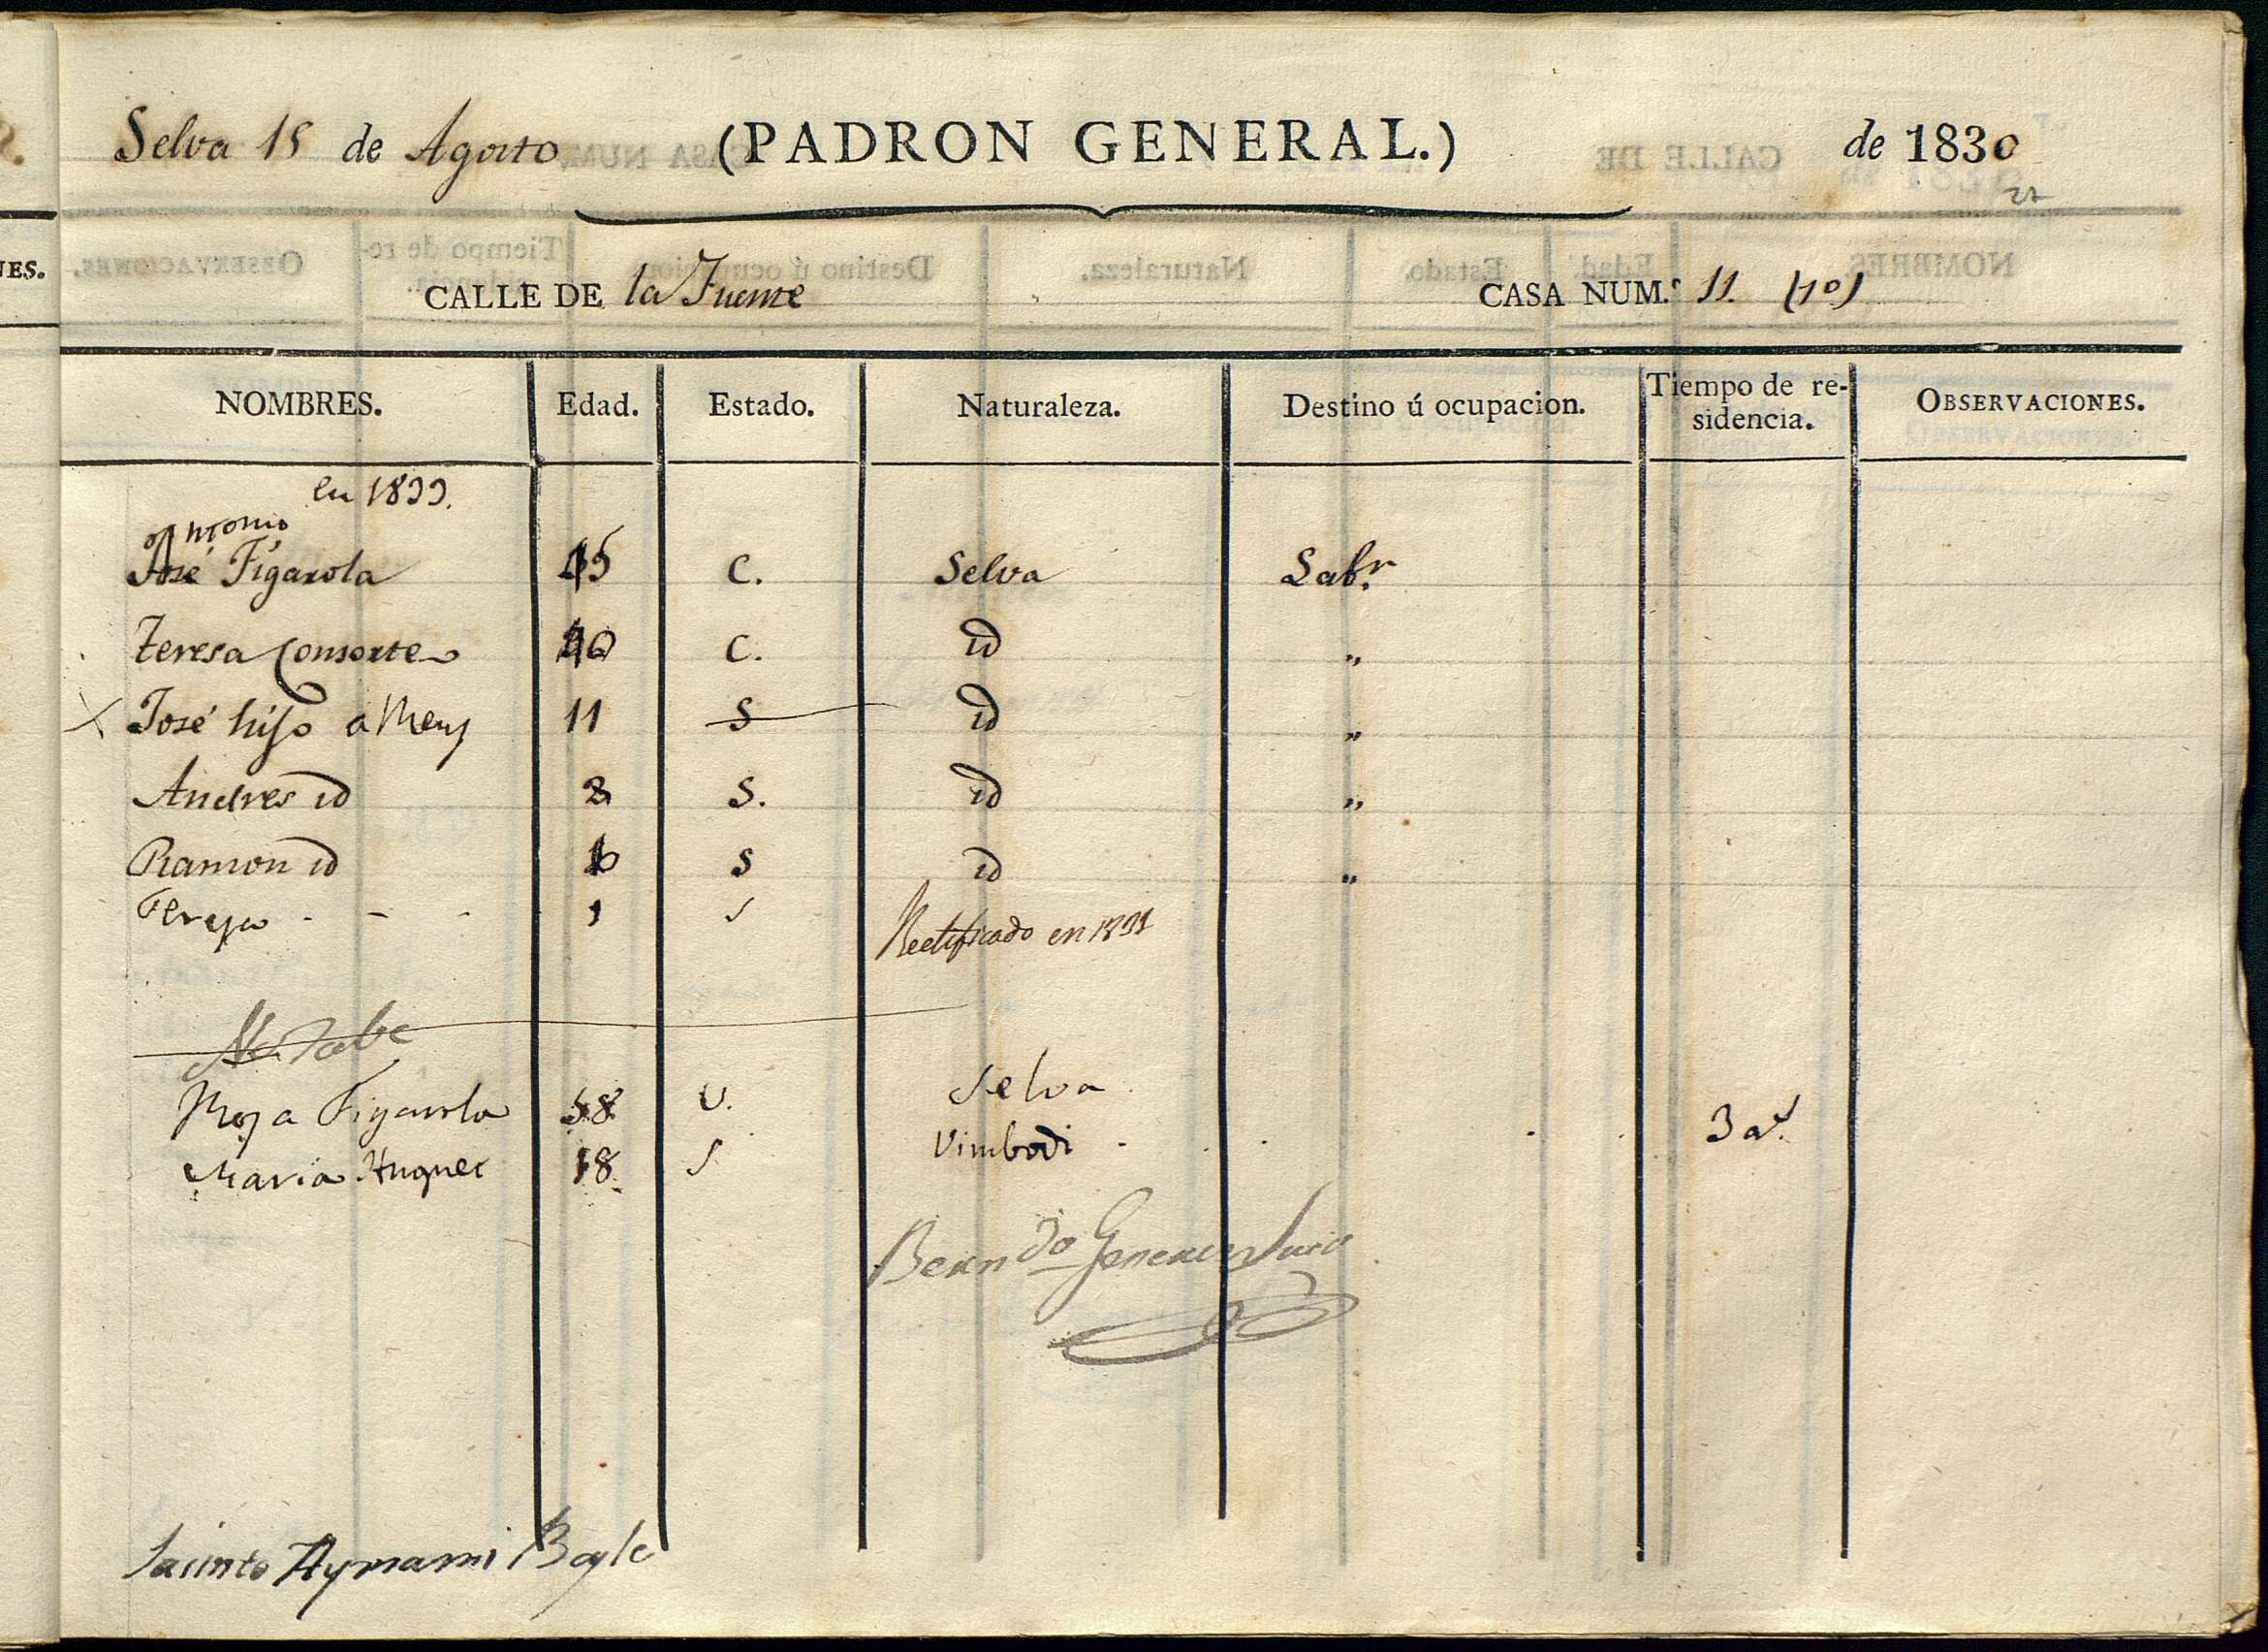 Selva 15 de Agosto (PADRON GENERAL.) de 1830
27
CALLE DE la Fuente CASA NUM.º 11. (10)
NOMBRES. Edad. Estado. Naturaleza. Destino ú ocupacion. Tiempo de residencia. OBSERVACIONES.
en 1833.
Antonio
José Figarola 45 C. Selva Labr.
Teresa Consorte 40 C. id „
X José hijo a Reus 11 S id „
Andres id 8 S. id „
Ramon id 6 S id „
Teresa - - - 1 S
Rectificado en 1831
Rosa Figarola 58 V. Selva
Maria Huguet 18 S Vimbodi 3 as.
Jacinto Aymami Bayle